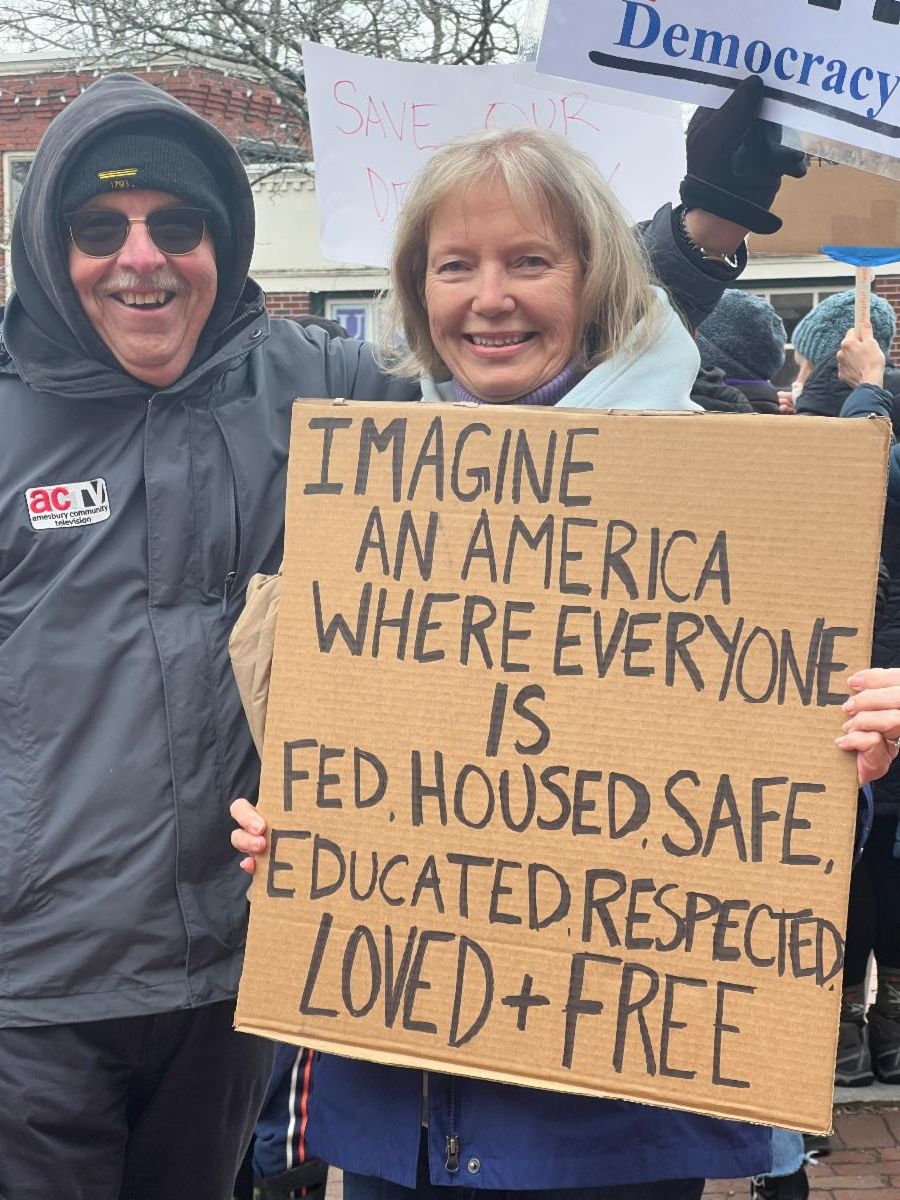 Democracy
SAVE OUR
1793
acTV
amesbury community
television
IMAGINE
AN AMERICA
WHERE EVERYONE
IS
FED, HOUSED, SAFE,
EDUCATED, RESPECTED,
LOVED + FREE